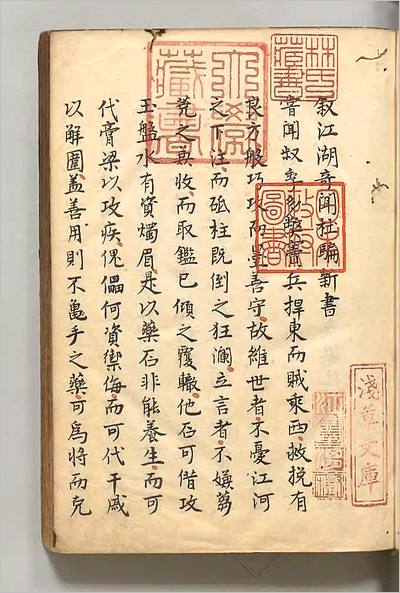 林氏藏書
叙江湖奇聞杜騙新書
嘗聞叔季兵捍東而賊乘西救挽有
良方般巧攻而墨善守故維世者不憂江河
之下注而砥柱既倒之狂瀾立言者不嫌蒭
蕘之兼收而取鑑已傾之覆轍他石可借攻
玉盤水有資燭眉是以藥石非能養生而可
代膏梁以攻疾傀儡何資禦侮而可代干戚
以解圍盖善用則不龜手之藥可爲將而克
藏書
圖書
淺草文庫